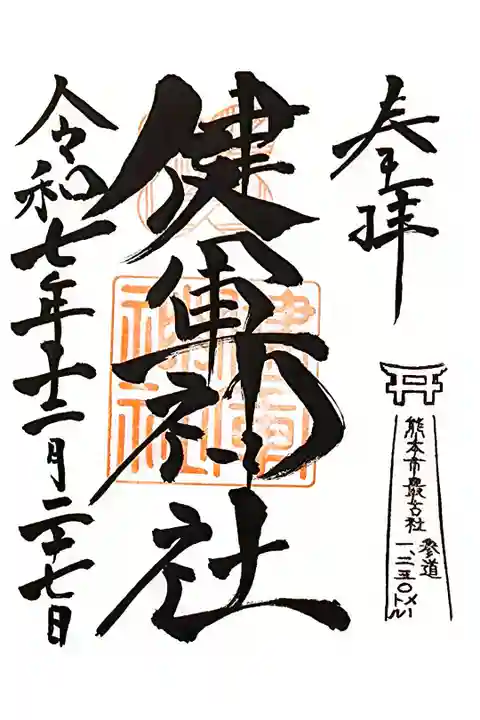 奉拝
熊本市最古社
参道
一、二五〇メートル
健軍神社
健軍
神社
令和七年十二月二十七日